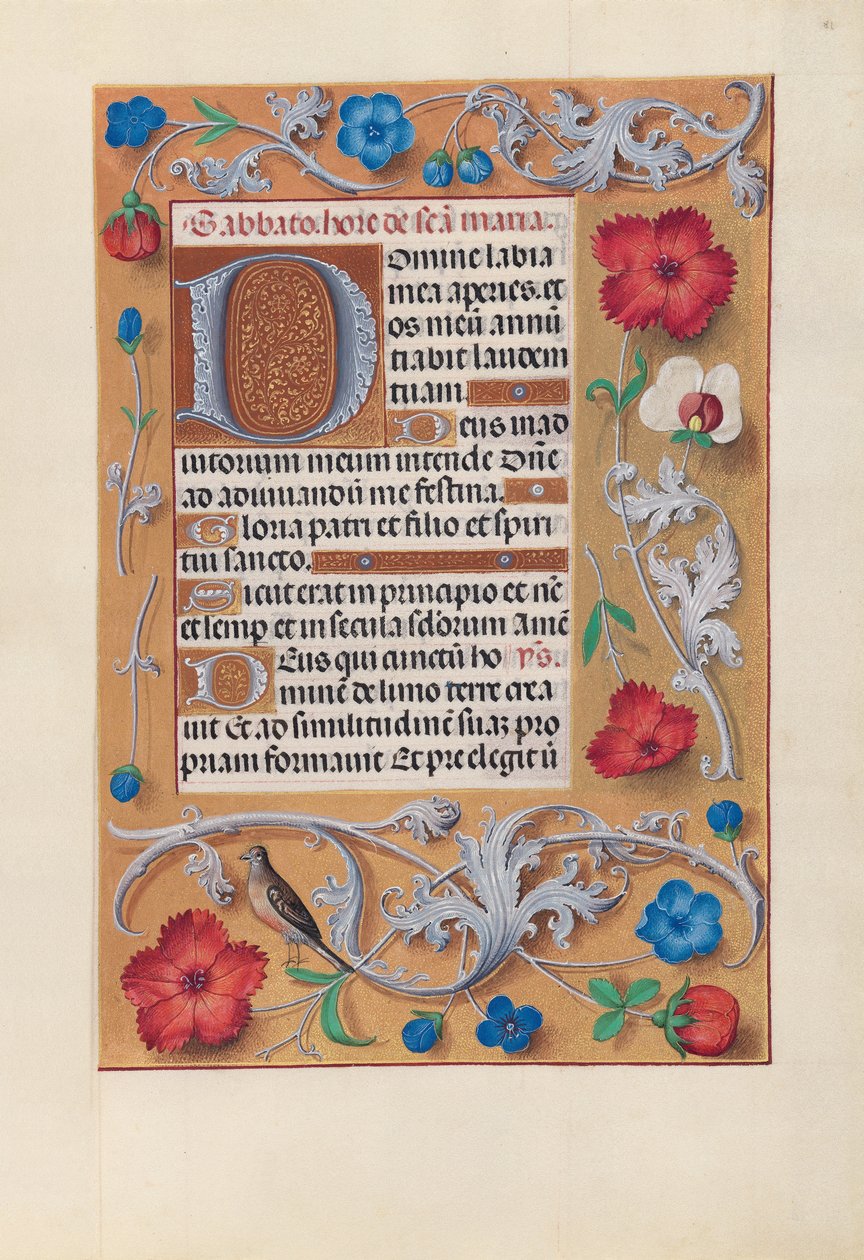 Sabbato. hore de scā maria.
Domine labia
mea aperies. et
os meū annū
tiabit laudem
tuam.
Deus in ad
iutorium meum intende Dn̄e
ad adiuuandū me festina.
Gloria patri et filio et spiri
tui sancto.
Sicut erat in principio et nc̄
et semp et in secula sclorum Amē
Deus qui cunctū ho ps̄.
minē de limo terre crea
uit Et ad similitudinē suaꝫ pro
priam formauit Et preelegit ū